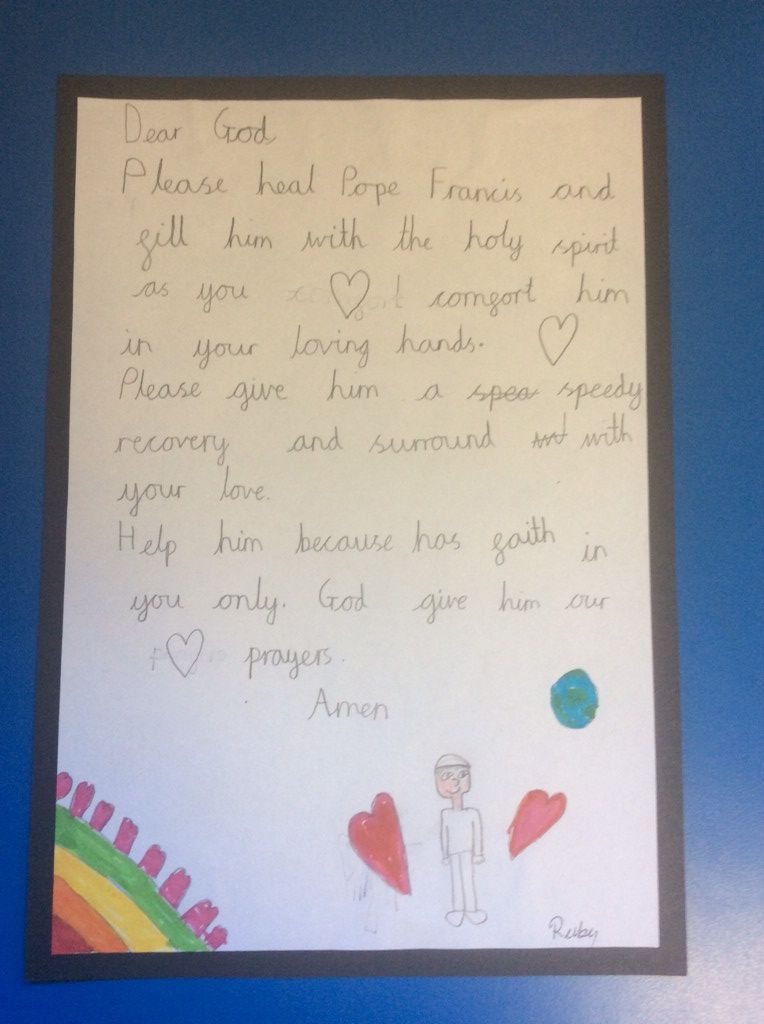 Dear God,
Please heal Pope Francis and
fill him with the holy spirit
as you comfort him
in your loving hands.
Please give him a spea speedy
recovery and surround with
your love.
Help him because has faith in
you only. God give him our
prayers.
Amen
Ruby